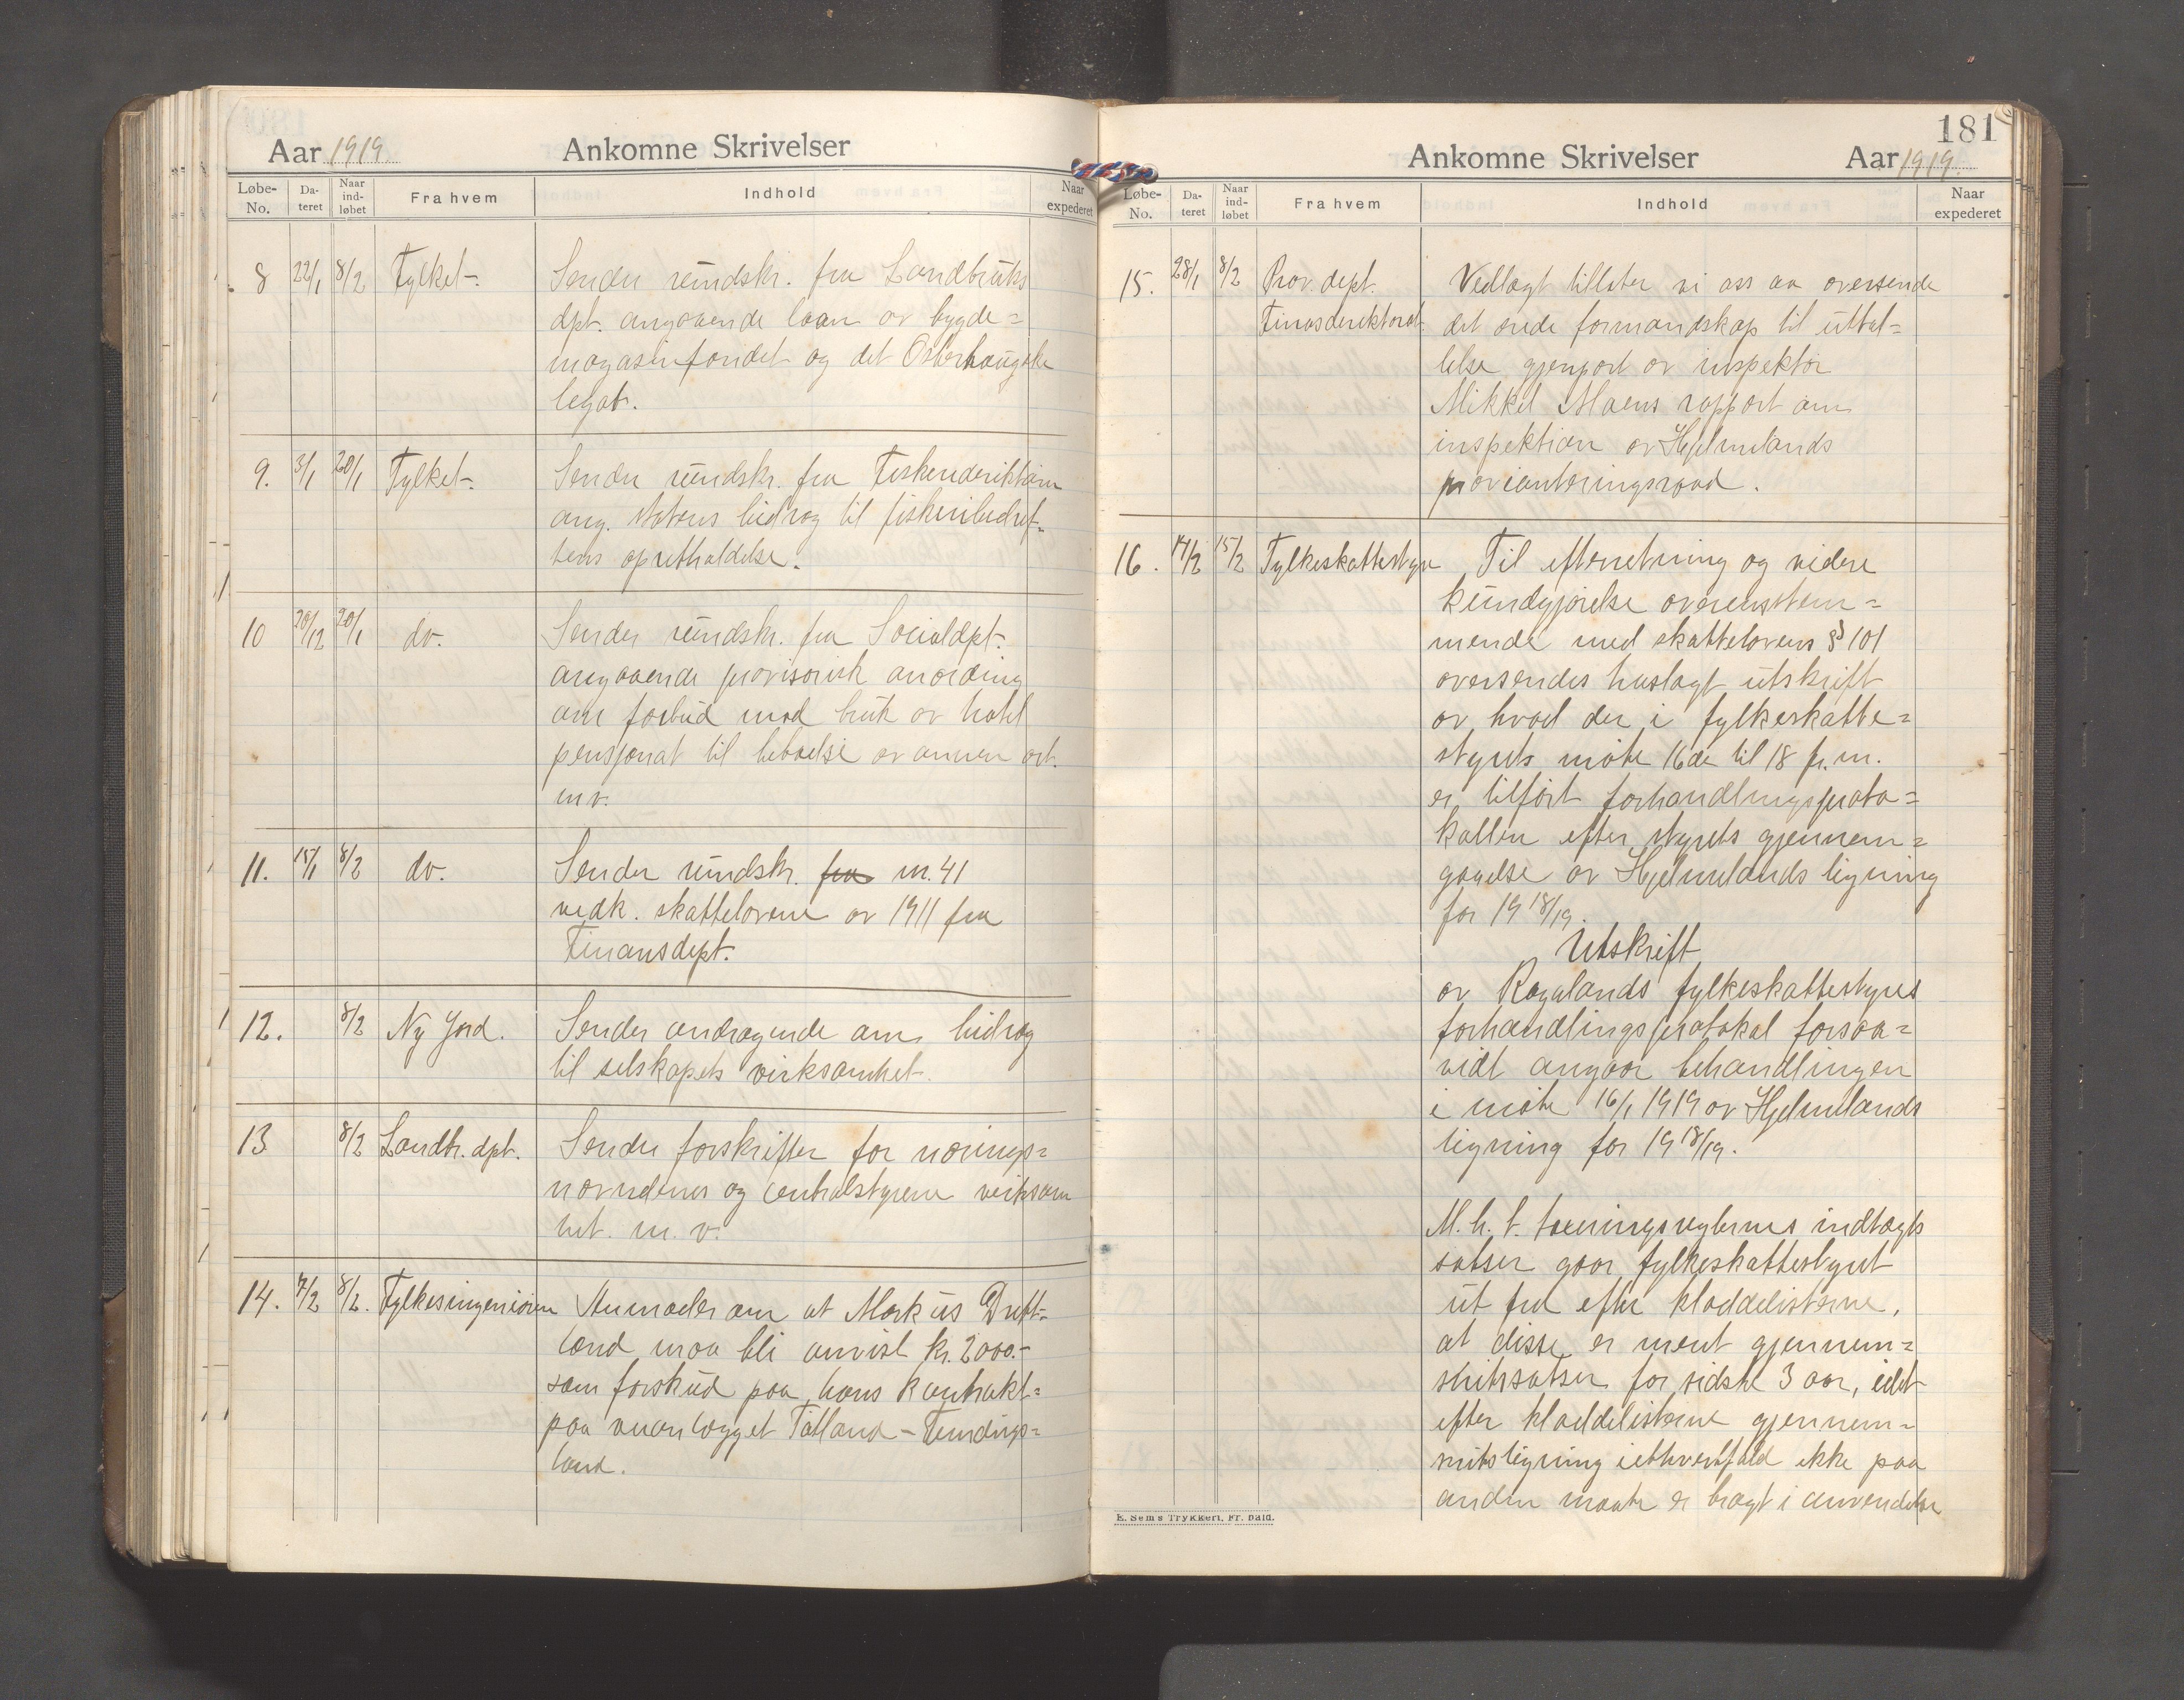 Aar 1919 Ankomne Skrivelser
Løbe-No. Da-teret Naar ind-løbet Fra hvem Indhold Naar expederet
8 22/1 8/2 Fylket. Sender rundskr. fra Landbruks
dpt. angaaende laan av bygde=
magasinfondet og det Osterhaugske
legat.
9. 3/1 20/1 Fylket. Sender rundskr. fra Fiskeridirektøren
ang. statens bidrag til fiskeribedrif=
tens opretholdelse.
10 20/12 20/1 do. Sender rundskr. fra Socialdpt.
angaaende provisorisk anording
om forbud mod bruk av hotel
pensjonat til beboelse av annen art.
m v.
11. 15/1 8/2 do. Sender rundskr. fra nr. 41
vedk. skattelovene av 1911 fra
Finansdept.
12. 8/2 Ny Jord. Sender andragende om bidrag
til selskapets virksomhet.
13 8/2 Landbr. dpt. Sender forskrifter for nærings=
nævndenes og centralstyrene virksom
het. m. v.
14. 7/2 8/2. Fylkesingeniøren Anmoder om at Markus Drift=
land maa bli anvist kr. 2000.-
som forskud paa hans kontrakt=
paa veianlægget Tøtland - Tundings=
land.
181
Ankomne Skrivelser Aar 1919
Løbe-No. Da-teret Naar ind-løbet Fra hvem Indhold Naar expederet
15. 28/1 8/2 Prov. dept. Vedlagt tillater vi oss aa oversende
Finasderektorat. det ærede formandskap til uttal=
lelse gjenpart av inspektør
Mikkel Moens rapport om
inspektion av Hjelmelands
provianteringsraad.
16. 14/2 15/2 Fylkeskattestyre Til efterretning og videre
kundgjørelse overensstem=
mende med skattelovens § 101
oversendes hoslagt utskrift
av hvad der i fylkeskatte=
styrets møte 16de til 18 f. m.
er tilført forhandlingsproto=
kollen efter styrets gjennem=
gaaelse av Hjelmelands ligning
for 1918/19.
Utskrift
av Rogalands fylkeskattestyres
forhandlingsprotokol forsaa=
vidt angaar behandlingen
i møte 16/1 1919 av Hjelmelands
ligning for 1918/19.
M. h. t. taxeringsreglernes indtægts
satser gaar fylkeskattestyret
ut fra efter kladdelisterne,
at disse er ment gjennem=
snitssatser for sidste 3 aar, idet
efter kladdelisterne gjennem=
snitsligning iethvertfald ikke paa
anden maate er bragt i anvendelse
E. Sems Trykkeri, Fr.hald.